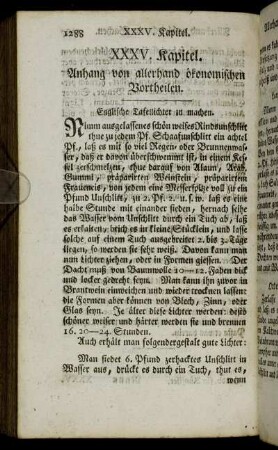 1288 XXXV. Kapitel.
XXXV. Kapitel.
Anhang von allerhand ökonomischen
Vortheilen.
Englische Tafellichter zu machen.
Nimm ausgelassenes schön weisses Rindsunschlitt
ohne zu jedem Pf. Schaafunschlitt ein achtel
Pf., laß es mit so viel Regen- oder Brunnenwas-
ser, daß er davon überschwemmt ist, in einem Kes-
sel zerschmelzen, thue darauf von Alaun, Arab.
Gummi, präparirten Weinstein, präparirten
Fraueneis, von jedem eine Messerspitze voll zu ein
Pfund Unschlitt, zu 2. Pf. 2. u. s. w. laß es eine
halbe Stunde mit einander sieden, hernach seihe
das Wasser vom Unschlitt durch ein Tuch ab, laß
es erkalten, brich es in kleine Stücklein, und lasse
solche auf einem Tuch ausgebreitet 2. bis 3. Täge
liegen, so werden sie sehr weiß. Davon kann man
nun Lichter ziehen, oder in Formen giessen. Der
Dacht muß von Baumwolle 10—12. Faden dick
und locker gedreht seyn. Man kann ihn zuvor in
Brantwein einweichen und wieder trocknen lassen:
die Formen aber können von Blech, Zinn, oder
Glas seyn. Je älter diese Lichter werden: desto
schöner weisser und härter werden sie und brennen
16. 20—24. Stunden.
Auch erhält man folgendergestalt gute Lichter:
Man siedet 6. Pfund zerhacktes Unschlitt in
Wasser aus, drückt es durch ein Tuch, thut es,
wenn